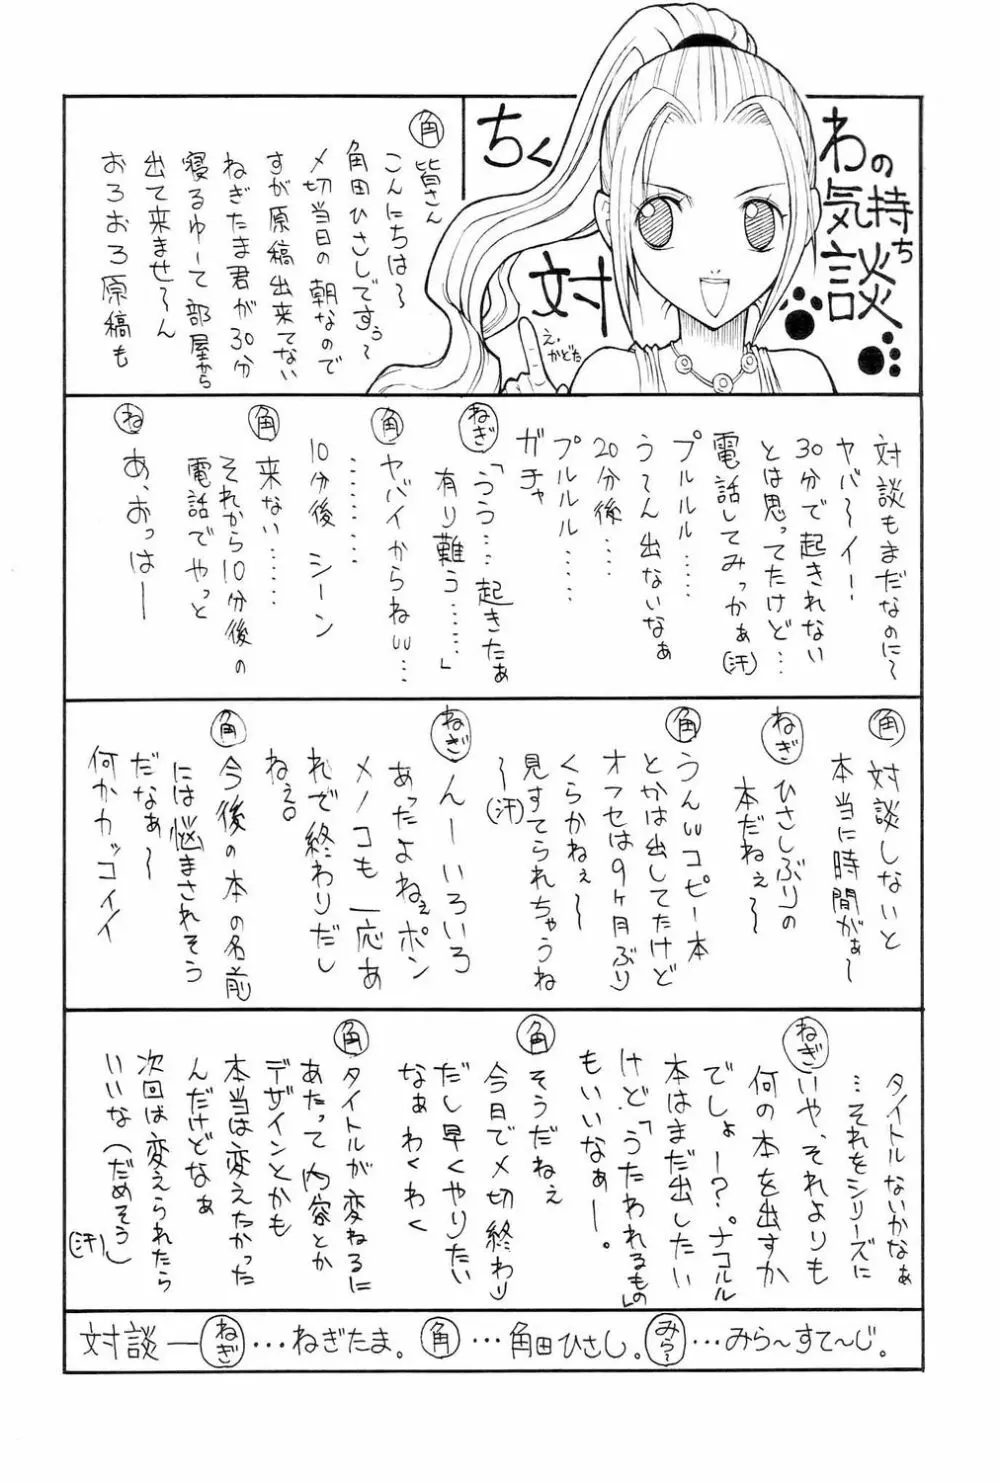 ちくわの気持ち
対談
え.かどた
角 皆さん
こんにちは〜
角田ひさしですぅ〜
〆切当日の朝なので
すが原稿出来てない
ねぎたま君が30分
寝るゆーて部屋から
出て来ませ〜ん
おろおろ原稿も
対談もまだなのに〜
ヤバ〜イ!
30分で起きれない
とは思ってたけど…
電話してみっかぁ(汗)
プルルル……
う〜ん出ないなぁ
20分後……
プルルル……
ガチャ
ねぎ「うう…起きたぁ
有り難う……」
角 ヤバイからねw…
…………
10分後 シーン
角 来ない……
それから10分後の
電話でやっと
ね あ、おっはー
角 対談しないと
本当に時間がぁ〜
ねぎ ひさしぶりの
本だねぇ〜
角 うんwコピー本
とかは出してたけど
オフセは9ヶ月ぶり
くらかねぇ〜
見すてられちゃうね
〜(汗)
ねぎ んーいろいろ
あったよねぇポン
メノコも一応あ
れで終わりだし
ねぇ。
角 今後の本の名前
には悩まされそう
だなぁ〜
何かカッコイイ
タイトルないかなぁ
…それをシリーズに
ねぎ いや、それよりも
何の本を出すか
でしょー?。ナコルル
本はまだ出したい
けど「うたわれるもの」
もいいなぁー。
角 そうだねぇ
今日で〆切終わり
だし早くやりたい
なぁ わくわく
角 タイトルが変わるに
あたって内容とか
デザインとかも
本当は変えたかった
んだけどなぁ
次回は変えられたら
いいな(だめそう)
(汗)
対談―ねぎ…ねぎたま。角…角田ひさし。みら〜…みら〜すて〜じ。